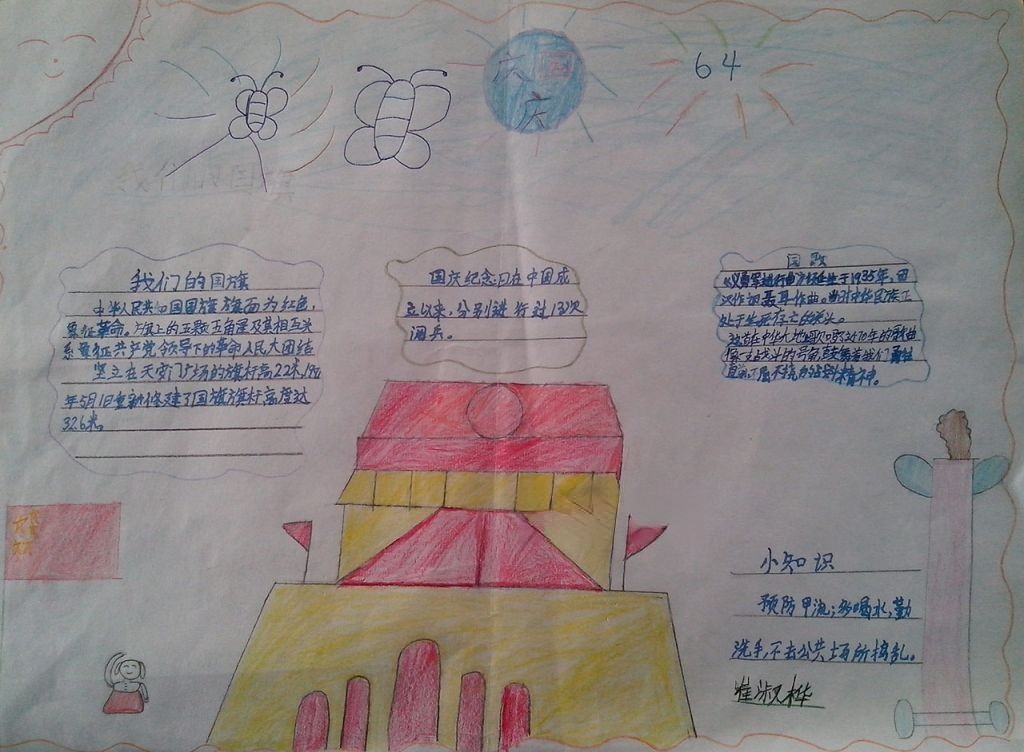 庆国
庆
64
我们的国旗
中华人民共和国国旗旗面为红色,
象征革命。旗上的五颗五角星及其相互关
系象征共产党领导下的革命人民大团结
坚立在天安门广场的旗杆高22米,
年5月1日重新修建了国旗旗杆高度达
32.6米。
国庆纪念日在中国成
立以来,分别进行过13次
阅兵。
国歌
《义勇军进行曲》诞生于1935年,田
汉作词聂耳作曲。当时中华民族正
处于生死存亡的关头。
小知识
预防甲流:多喝水,勤
洗手,不去公共场所捣乱。
淑桦